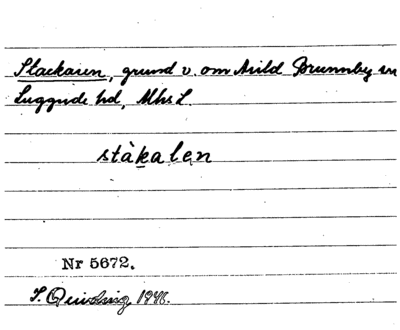 Stackaren, grund v. om Arild Brunnby sn
Luggude hd, Mhs L.
ståkalen
Nr 5672.
1946.